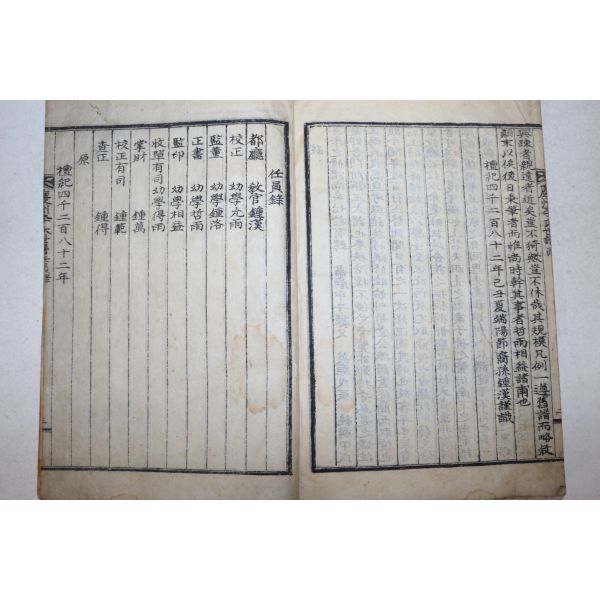 與疎者親遠者近矣豈不猗歟豈不休哉其規模凡例一遵舊譜而略敍
顚末以俟後日秉筆者而惟尚時幹其事者哲雨相益諸甫也
檀紀四千二百八十二年己丑夏端陽節裔孫鍾漢謹識
任員錄
都廳 敎官鍾漢
校正 幼學元雨
監董 幼學鍾洛
正書 幼學哲雨
監印 幼學相益
收單有司幼學得雨
掌財 鍾萬
校正有司 鍾範
査正 鍾得
原
檀紀四千二百八十二年